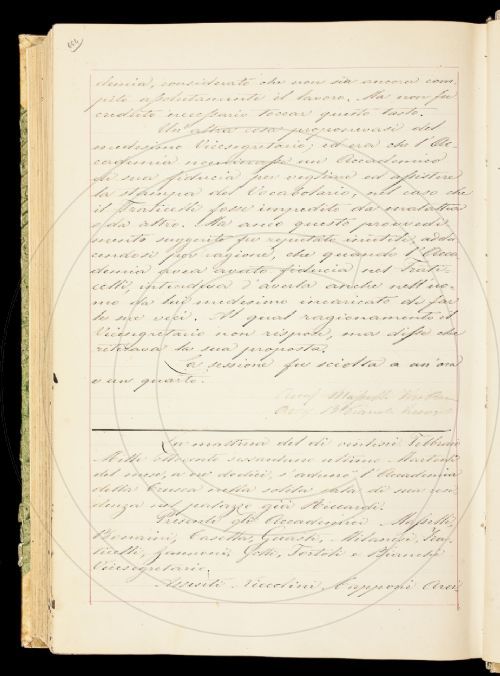 demia, considerato che non sia ancora com
pito assolutamente il lavoro. Ma non fu
creduto necessario toccar questo tasto.
Un'altra cosa proponevasi dal
medesimo Vicesegretario; ed era che l'Ac
cademia nominasse un Accademico
di sua fiducia per vegliare ed assistere
la stampa del Vocabolario, nel caso che
il Fraticelli fosse impedito da malattia
o da altro. Ma anco questo provvedi
mento suggerito fu reputato inutile, addu
cendosi per ragione, che quando l'Acca
demia avea avuto fiducia nel Frati-
celli, intendeva d'averla anche nell'uo-
mo da lui medesimo incaricato di far
le sue veci. Al qual ragionamento il
Vicesegretario non rispose, ma disse che
ritirava la sua proposta.
La sessione fu sciolta a un'ora
e un quarto.
La mattina del dì ventisei Febbraio
Mille ottocento sessantuno ultimo Martedì
del mese, a ore dodici, s'adunò l'Accademia
della Crusca nella solita sala di sua resi
denza nel palazzo già Riccardi.
Presenti gli Accademici Masselli,
Bonaini, Casella, Guasti, Milanesi, Fra
ticelli, Zannoni, Gotti, Tortoli e Bianchi
Vicesegretario.
Assenti Niccolini Capponi Arci